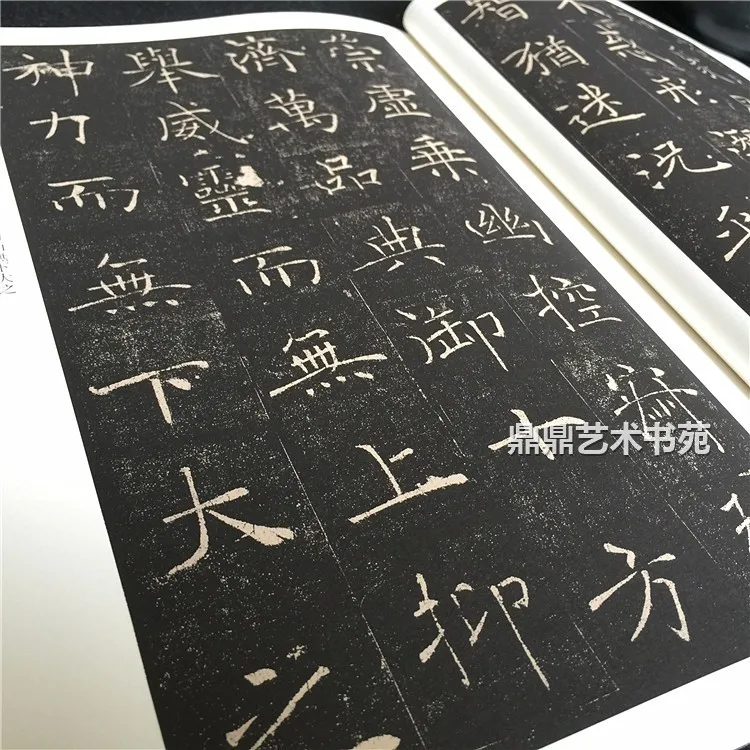 惑形
智猶迷况乎
崇虛乘幽控寂
濟萬品典御十方
舉威靈而無上抑
神力而無下大之
鼎鼎艺术书苑